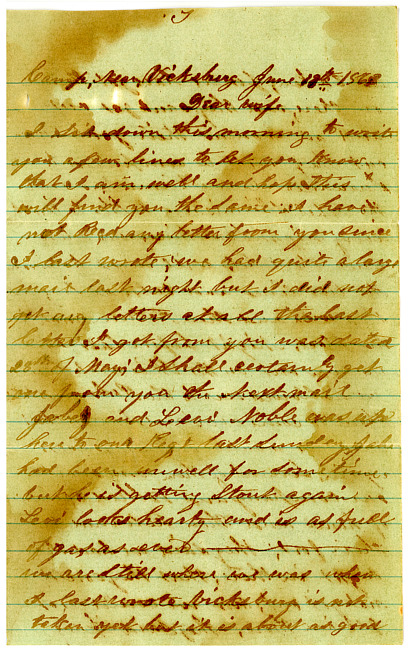 Camp, Near Vicksburg June 18th 1863
Dear wife
I set down this morning to write
you a few lines to let you know
that I am well and hope this
will find you the same I have
not Recd any letter from you since
I last wrote we had quit a large
mail last night but I did not
get any letters at all the last
letter I got from you was dated
of May I shall certainly get
one from you the next mail
John and Levi Noble was up
here to our Regt last Sunday John
had been unwell for some time
but he is getting Stout again
Levi looks hearty and is as full
of gas as ever
we are Still where we was when
I last wrote Vicksburg is not
taken yet but it is about as good